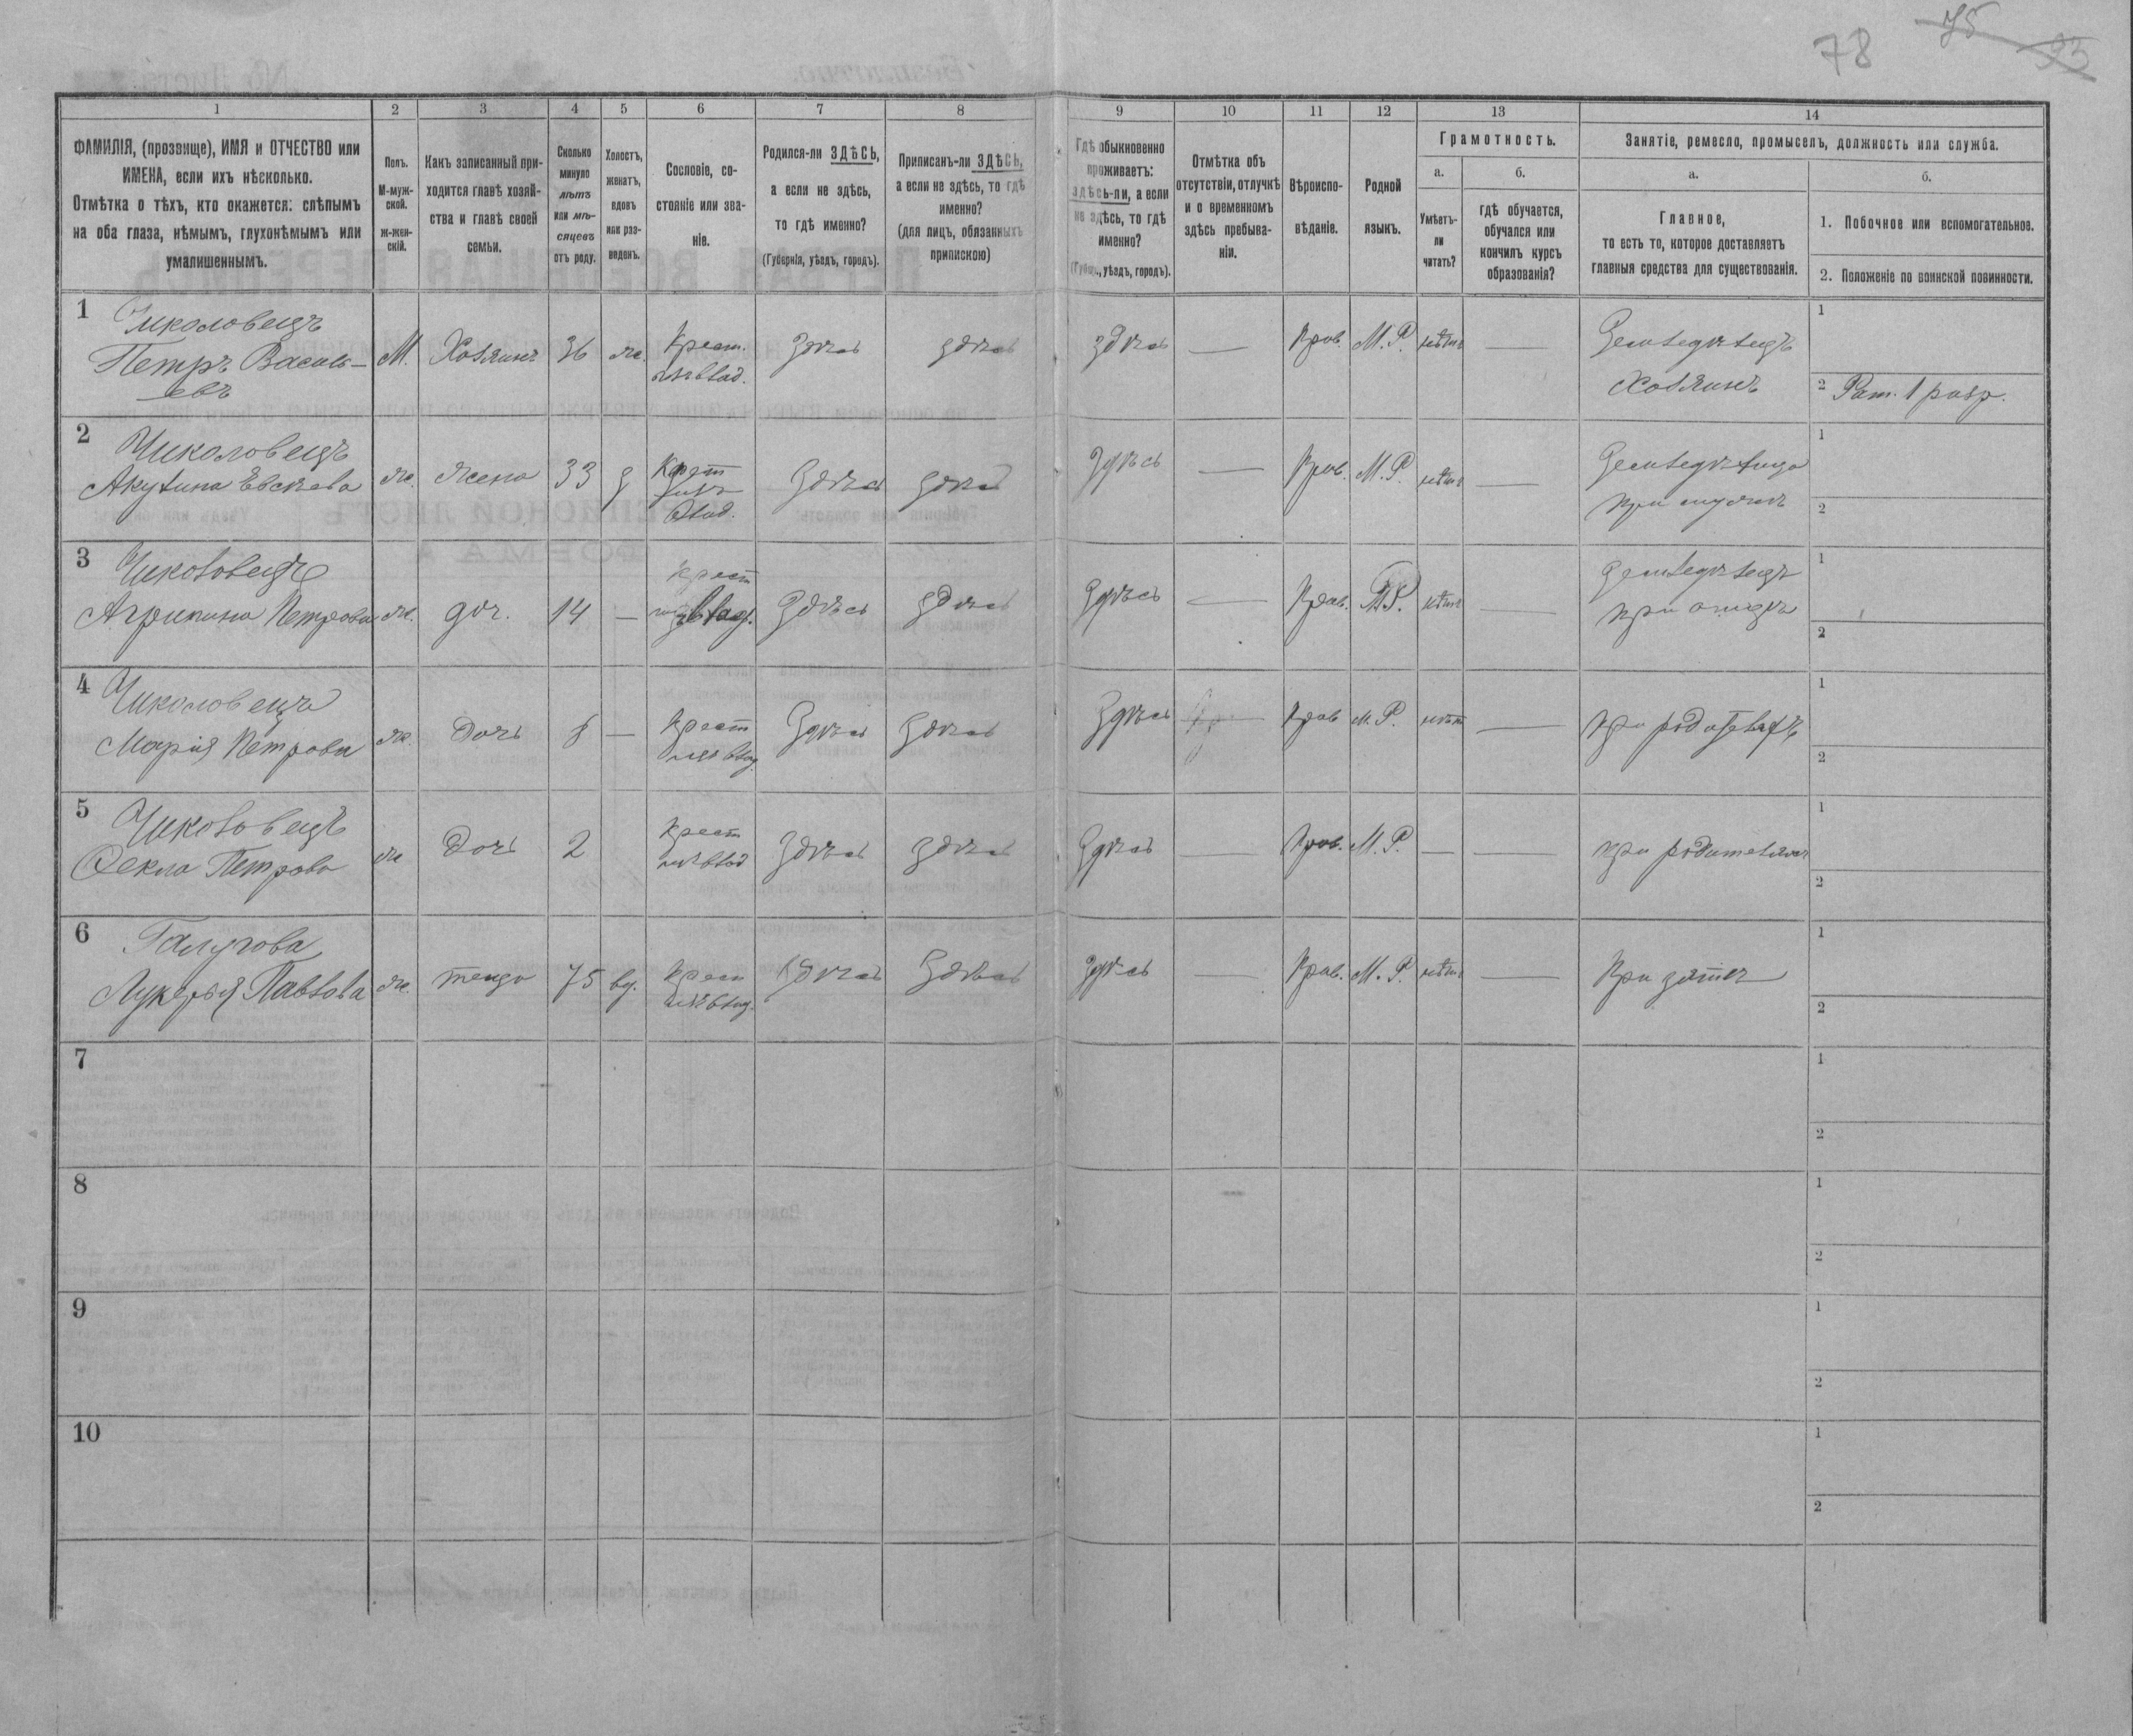 78 75 93
1 2 3 4 5 6 7 8 9 10 11 12 13 14
ФАМИЛІЯ, (прозвище), ИМЯ и ОТЧЕСТВО или
ИМЕНА, если ихъ нѣсколько.
Отмѣтка о тѣхъ, кто окажется: слѣпымъ
на оба глаза, нѣмымъ, глухонѣмымъ или
умалишеннымъ.
Полъ.
М-муж-
ской.
ж-жен-
скій.
Какъ записанный при-
ходится главѣ хозяй-
ства и главѣ своей
семьи.
Сколько
минуло
лѣтъ
или мѣ-
сяцевъ
отъ роду.
Холостъ,
женатъ,
вдовъ
или раз-
веденъ.
Сословіе, со-
стояніе или зва-
ніе.
Родился-ли ЗДѢСЬ,
а если не здѣсь,
то гдѣ именно?
(Губернія, уѣздъ, городъ).
Приписанъ-ли ЗДѢСЬ,
а если не здѣсь, то гдѣ
именно?
(для лицъ, обязанныхъ
припискою)
Гдѣ обыкновенно
проживаетъ:
здѣсь-ли, а если
не здѣсь, то гдѣ
именно?
(Губерн., уѣздъ, городъ).
Отмѣтка объ
отсутствіи, отлучкѣ
и о временномъ
здѣсь пребыва-
ніи.
Вѣроиспо-
вѣданіе.
Родной
языкъ.
Грамотность.
а.
Умѣетъ-
ли
читать?
б.
гдѣ обучается,
обучался или
кончилъ курсъ
образованія?
Занятіе, ремесло, промыселъ, должность или служба.
а.
Главное,
то есть то, которое доставляетъ
главныя средства для существованія.
б.
1. Побочное или вспомогательное.
2. Положеніе по воинской повинности.
1 Чиколовецъ
Петръ Василь-
евъ
М. Хозяинъ 36 ж. Крест. Здѣсь здѣсь здѣсь — Прав. М.Р. нѣтъ — Земледѣлецъ
Хозяинъ
1
2 Рат. 1 разр.
2 Чиколовецъ
Акулина Евсѣева ж. жена 33 Крест Здѣсь здѣсь Здѣсь — Прав. М.Р. нѣтъ — Земледѣлица
при мужѣ
1
2
3 Чиколовецъ
Агрипина Петрова ж. доч. 14 — Крест Здѣсь здѣсь Здѣсь — Прав. М.Р. нѣтъ — Земледѣлецъ
при отцѣ
1
2
4 Чиколовецъ
Марія Петрова ж. дочь 8 — Крест Здѣсь Здѣсь Здѣсь — Прав М.Р. нѣт —
1
2
5 Чиколовецъ
Фекла Петрова ж дочь 2 Крест Здѣсь здѣсь Здѣсь — Прав. М.Р. — — при родителяхъ
1
2
6 Галугова
Лукерья Павлова ж. теща 75 вд. Крест Здѣсь Здѣсь Здѣсь — Прав. М.Р. нѣтъ — При зятѣ
1
2
7
1
2
8
1
2
9
1
2
10
1
2